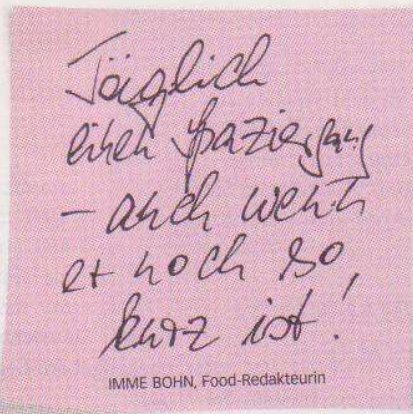 Täglich
einen Spaziergang
– auch wenn
er noch so
kurz ist!
IMME BOHN, Food-Redakteurin